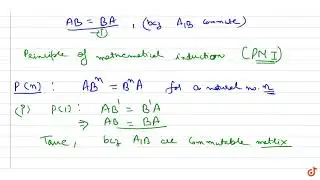 AB = BA , (bcz A,B commute)
(1)
Principle of mathematical induction (PMI)
P(n): ABⁿ = BⁿA for a natural no. n
(i) P(1): AB¹ = B¹A
⇒ AB = BA
True, bcz A,B are commutable matrix